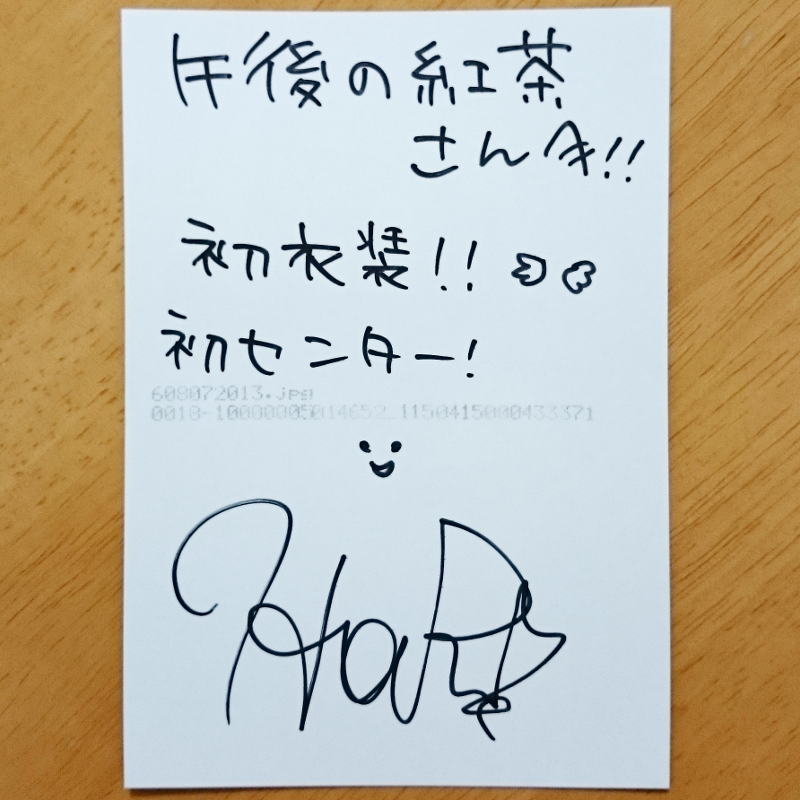 午後の紅茶
さんへ!!
初衣装!!
初センター!
608072013.jpg